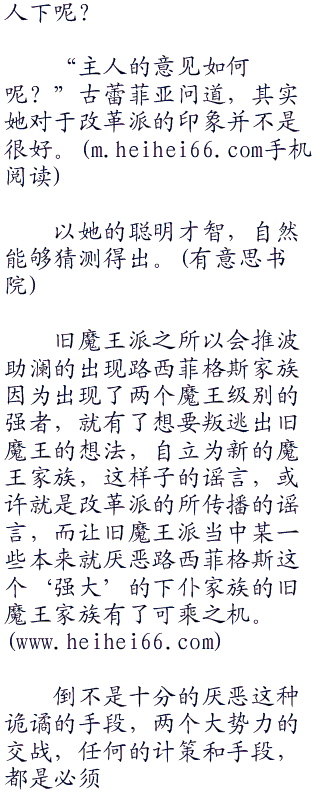 人下呢？
“主人的意见如何
呢？”古蕾菲亚问道，其实
她对于改革派的印象并不是
很好。(m.heihei66.com手机
阅读)
以她的聪明才智，自然
能够猜测得出。(有意思书
院)
旧魔王派之所以会推波
助澜的出现路西菲格斯家族
因为出现了两个魔王级别的
强者，就有了想要叛逃出旧
魔王的想法，自立为新的魔
王家族，这样子的谣言，或
许就是改革派的所传播的谣
言，而让旧魔王派当中某一
些本来就厌恶路西菲格斯这
个‘强大’的下仆家族的旧
魔王家族有了可乘之机。
(www.heihei66.com)
倒不是十分的厌恶这种
诡谲的手段，两个大势力的
交战，任何的计策和手段，
都是必须